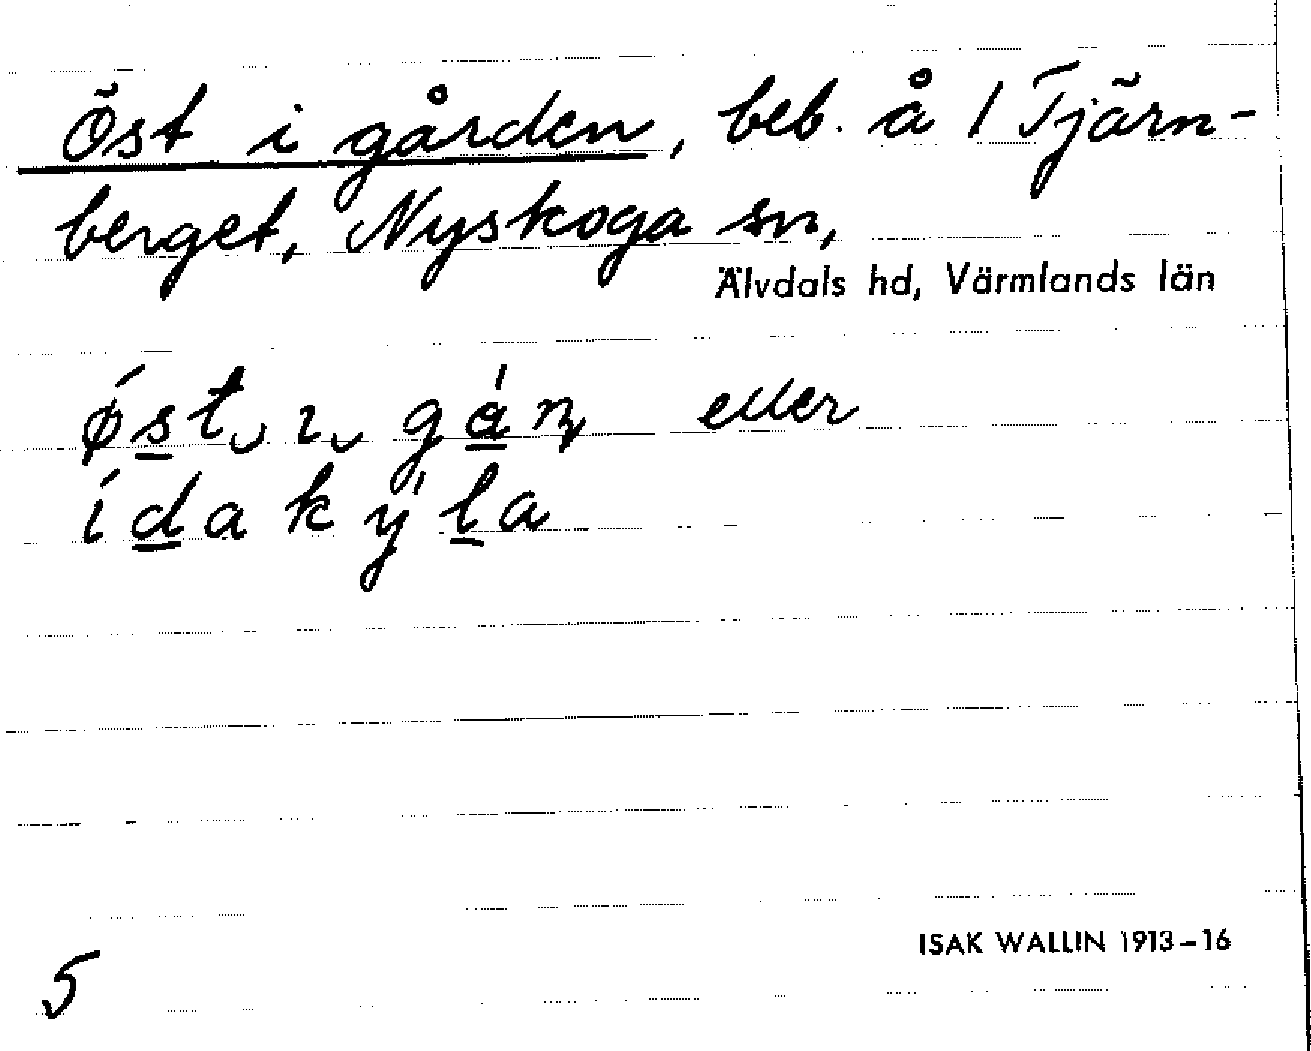 Öst i gården, beb. å 1 Tjärn-
berget, Nyskoga sn,
Älvdals hd, Värmlands län
ǿst ı gán eller
ídakýla
ISAK WALLIN 1913-16
5